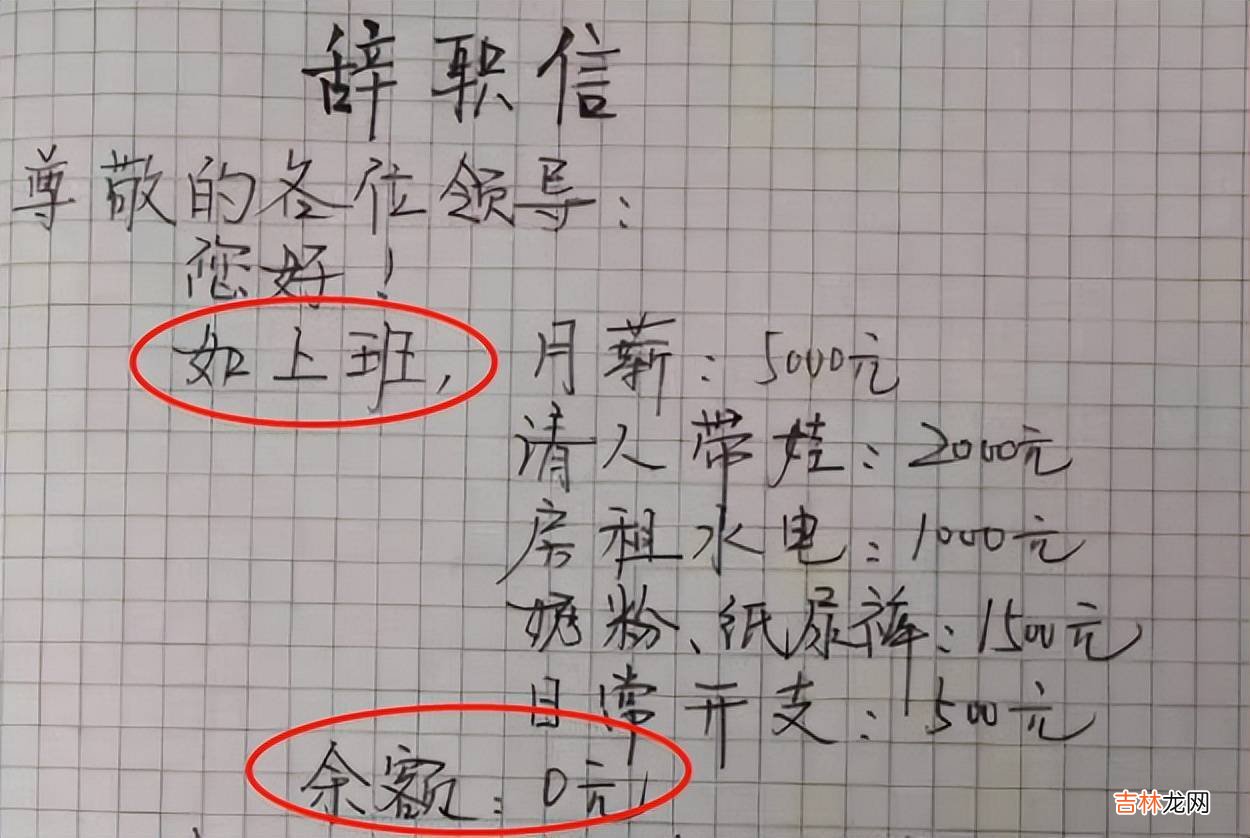 辞职信
尊敬的各位领导：
您好！
如上班，月薪：5000元
请人带娃：2000元
房租水电：1000元
奶粉、纸尿裤：1500元
日常开支：500元
余额：0元！
吉林龙网